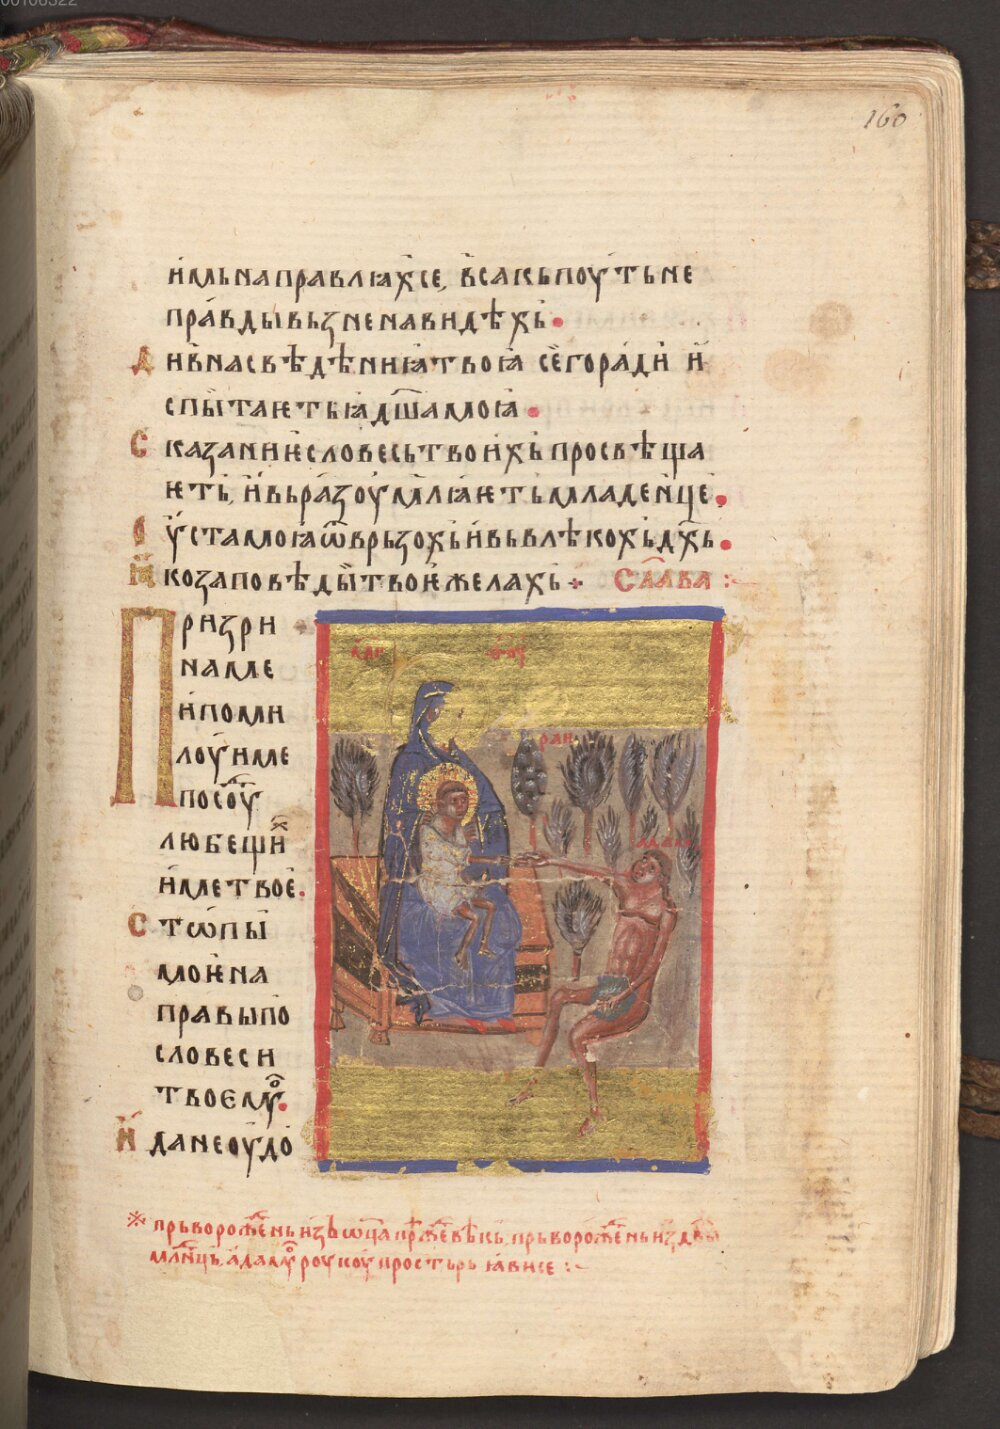 00106322
160
и҆мьнаправлꙗхсе, в҆сакьпоу́тьне
пра́вдывьꙁненавидѣхь.
Див҆насвѣдѣниꙗтвоꙗ се҆горади и҆
спы҆таѥтьꙗдш҃амоꙗ.
Сказаниѥсловесьтвоихьпросвѣща
ѥть, и҆вьраꙁоумлꙗѥтьмладен҆це.
Оу҆стамоꙗѿврьꙁохьи҆вьвлѣкохьдх҃ь.
Ꙗкозаповѣды҆твоиѥ҆желахь Слава :~
Приꙁри
наме
и҆поми
лоу́име
посоу
любещи҆
и҆метвое҆.
Стѡпы
моѥна
правыпо
словеси
твоему.
И҆данеоу҆до
раи
адамь
прьворожⷣеньиꙁьѿца прⷤевѣкь, прьворожⷣеньиꙁдѣы
млⷣнць, а҆дамоуроукоу простьрь ꙗвисе :~